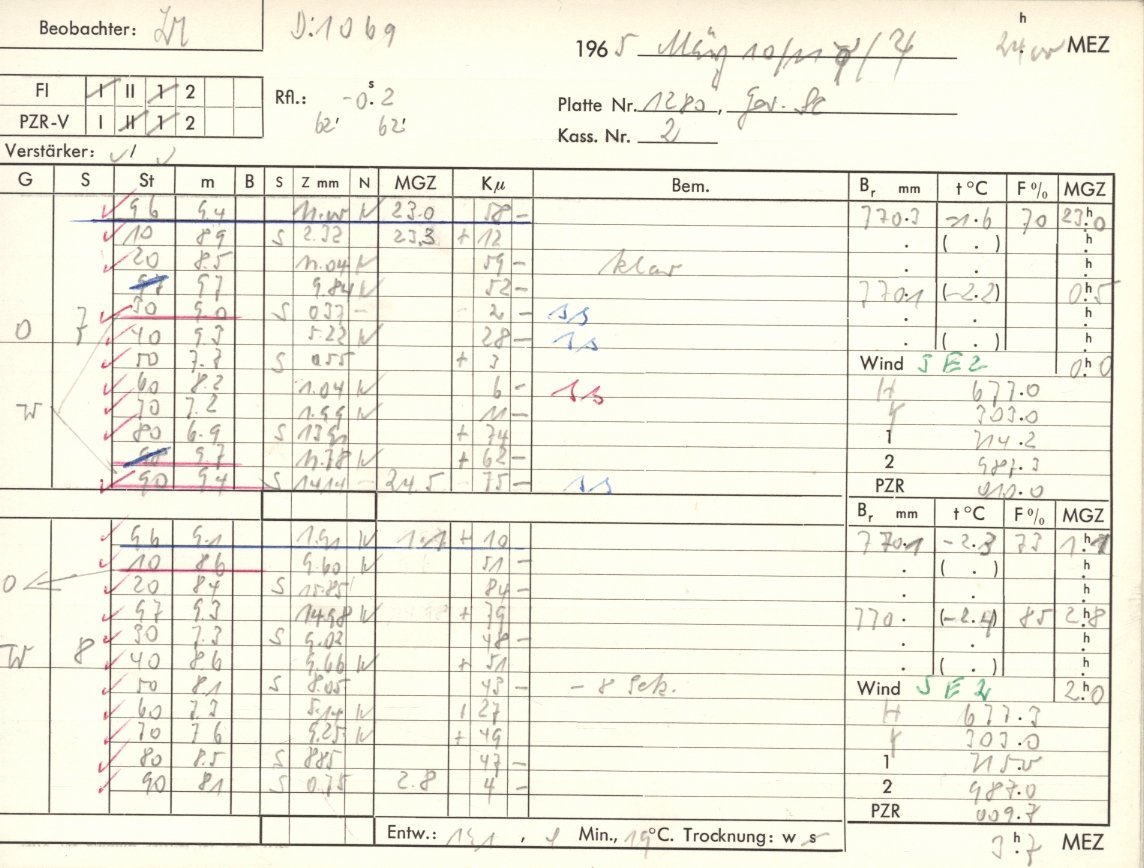 Beobachter:
D:1069
1965 März 10/11 24.00 h MEZ
FI I II 1 2
PZR-V I II 1 2
Rfl.: -0.s2
62' 62'
Platte Nr. 1280,
Kass. Nr. 2
Verstärker: /
G S St m B S Z mm N MGZ Kμ Bem.
96 9.4 11.00 N 23.0 58 -
10 8.9 S 2.32 23.3 + 12
20 8.5 11.04 N 59 - klar
97 9.7 9.84 N 52 -
30 9.0 S 037 - 2 - ss
O 7 40 9.3 5.22 N 28 - ss
50 7.7 S 055 + 3
60 8.2 1.04 N 6 - ss
W 70 7.2 1.99 N 11 -
80 6.9 S 1391 + 74
98 9.7 11.78 N + 62 -
90 9.4 S 1414 - 24.5 - 75 - ss
96 9.1 1.91 N 1.1 + 10
10 8.6 9.60 N 51 -
O 20 8.4 S 15.85 84 -
97 9.3 14.98 N + 79
30 7.3 S 9.02 48 -
W 8 40 8.6 9.66 N + 51
50 8.1 S 8.05 43 - - 8 Sek.
60 7.3 5.14 N + 27
70 7.6 9.25 N + 49
80 8.5 S 885 47 -
90 8.1 S 0.75 2.8 4 -
Entw.: , Min., 19°C. Trocknung: w s
Br mm t °C F % MGZ
770.3 -1.6 70 23.h0
. ( . ) .h
. . .h
770.1 (-2.2) 0.h5
. . .h
. ( . ) .h
Wind SE2 0.h0
H 677.0
303.0
1 714.2
2 987.3
PZR 010.0
Br mm t °C F % MGZ
770.1 -2.3 73 1.h1
. ( . ) .h
. . .h
770. (-2.4) 85 2.h8
. . .h
. ( . ) .h
Wind SE2 2.h0
H 677.3
303.0
1 715.0
2 987.0
PZR 009.7
3.h7 MEZ